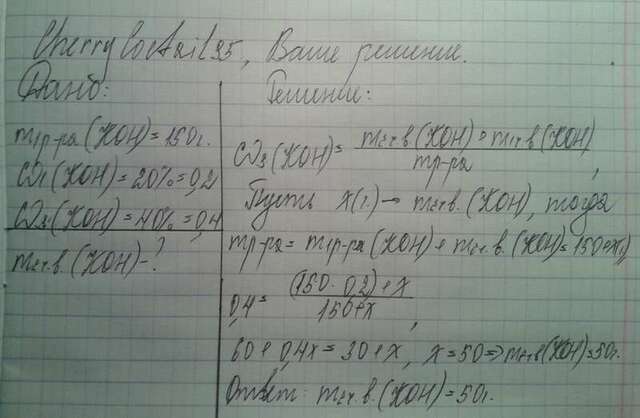 CherryCoctail95, Ваше решение.
Дано:
m₁р-ра(KOH)=150г.
ω₁(KOH)=20%=0,2
ω₃(KOH)=40%=0,4
m₂т.в.(KOH)-?
Решение:
ω₃(KOH)= m₂т.в(KOH)+m₁т.в(KOH) / mр-ра,
Пусть x(г.) - m₂т.в.(KOH), тогда
mр-ра= m₁р-ра(KOH)+ m₂т.в.(KOH)=150+x(г)
0,4= (150·0,2)+x / 150+x,
60+0,4x=30+x, x=50=>m₂т.в(KOH)=50г.
Ответ: m₂т.в.(KOH)=50г.